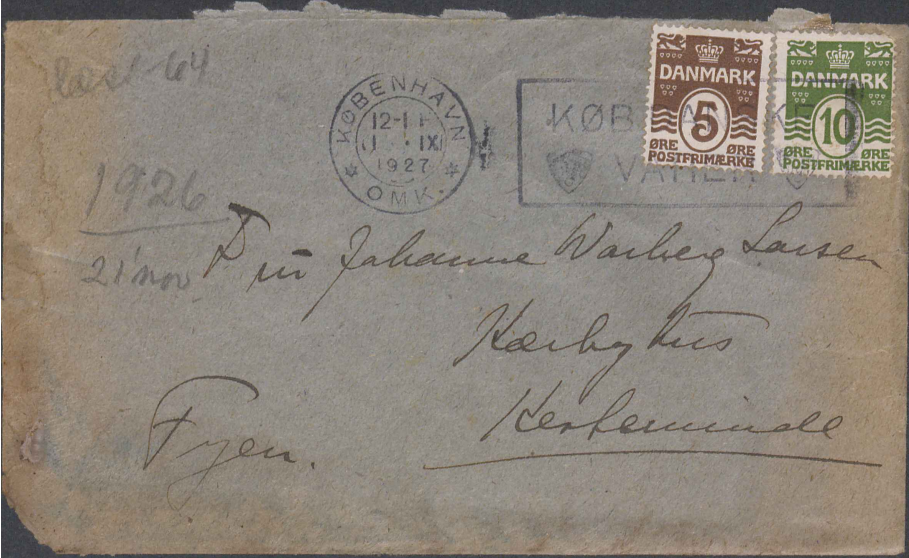 læst 64
1926
21' nov
KØBENHAVN
12-1
IX
1927
OMK.
KØB
VARER
DANMARK
5
ØRE ØRE
POSTFRIMÆRKE
DANMARK
10
ØRE ØRE
POSTFRIMÆRKE
Fru Johanne Warberg Larsen
Kærbyhus
Kerteminde
Fyen.